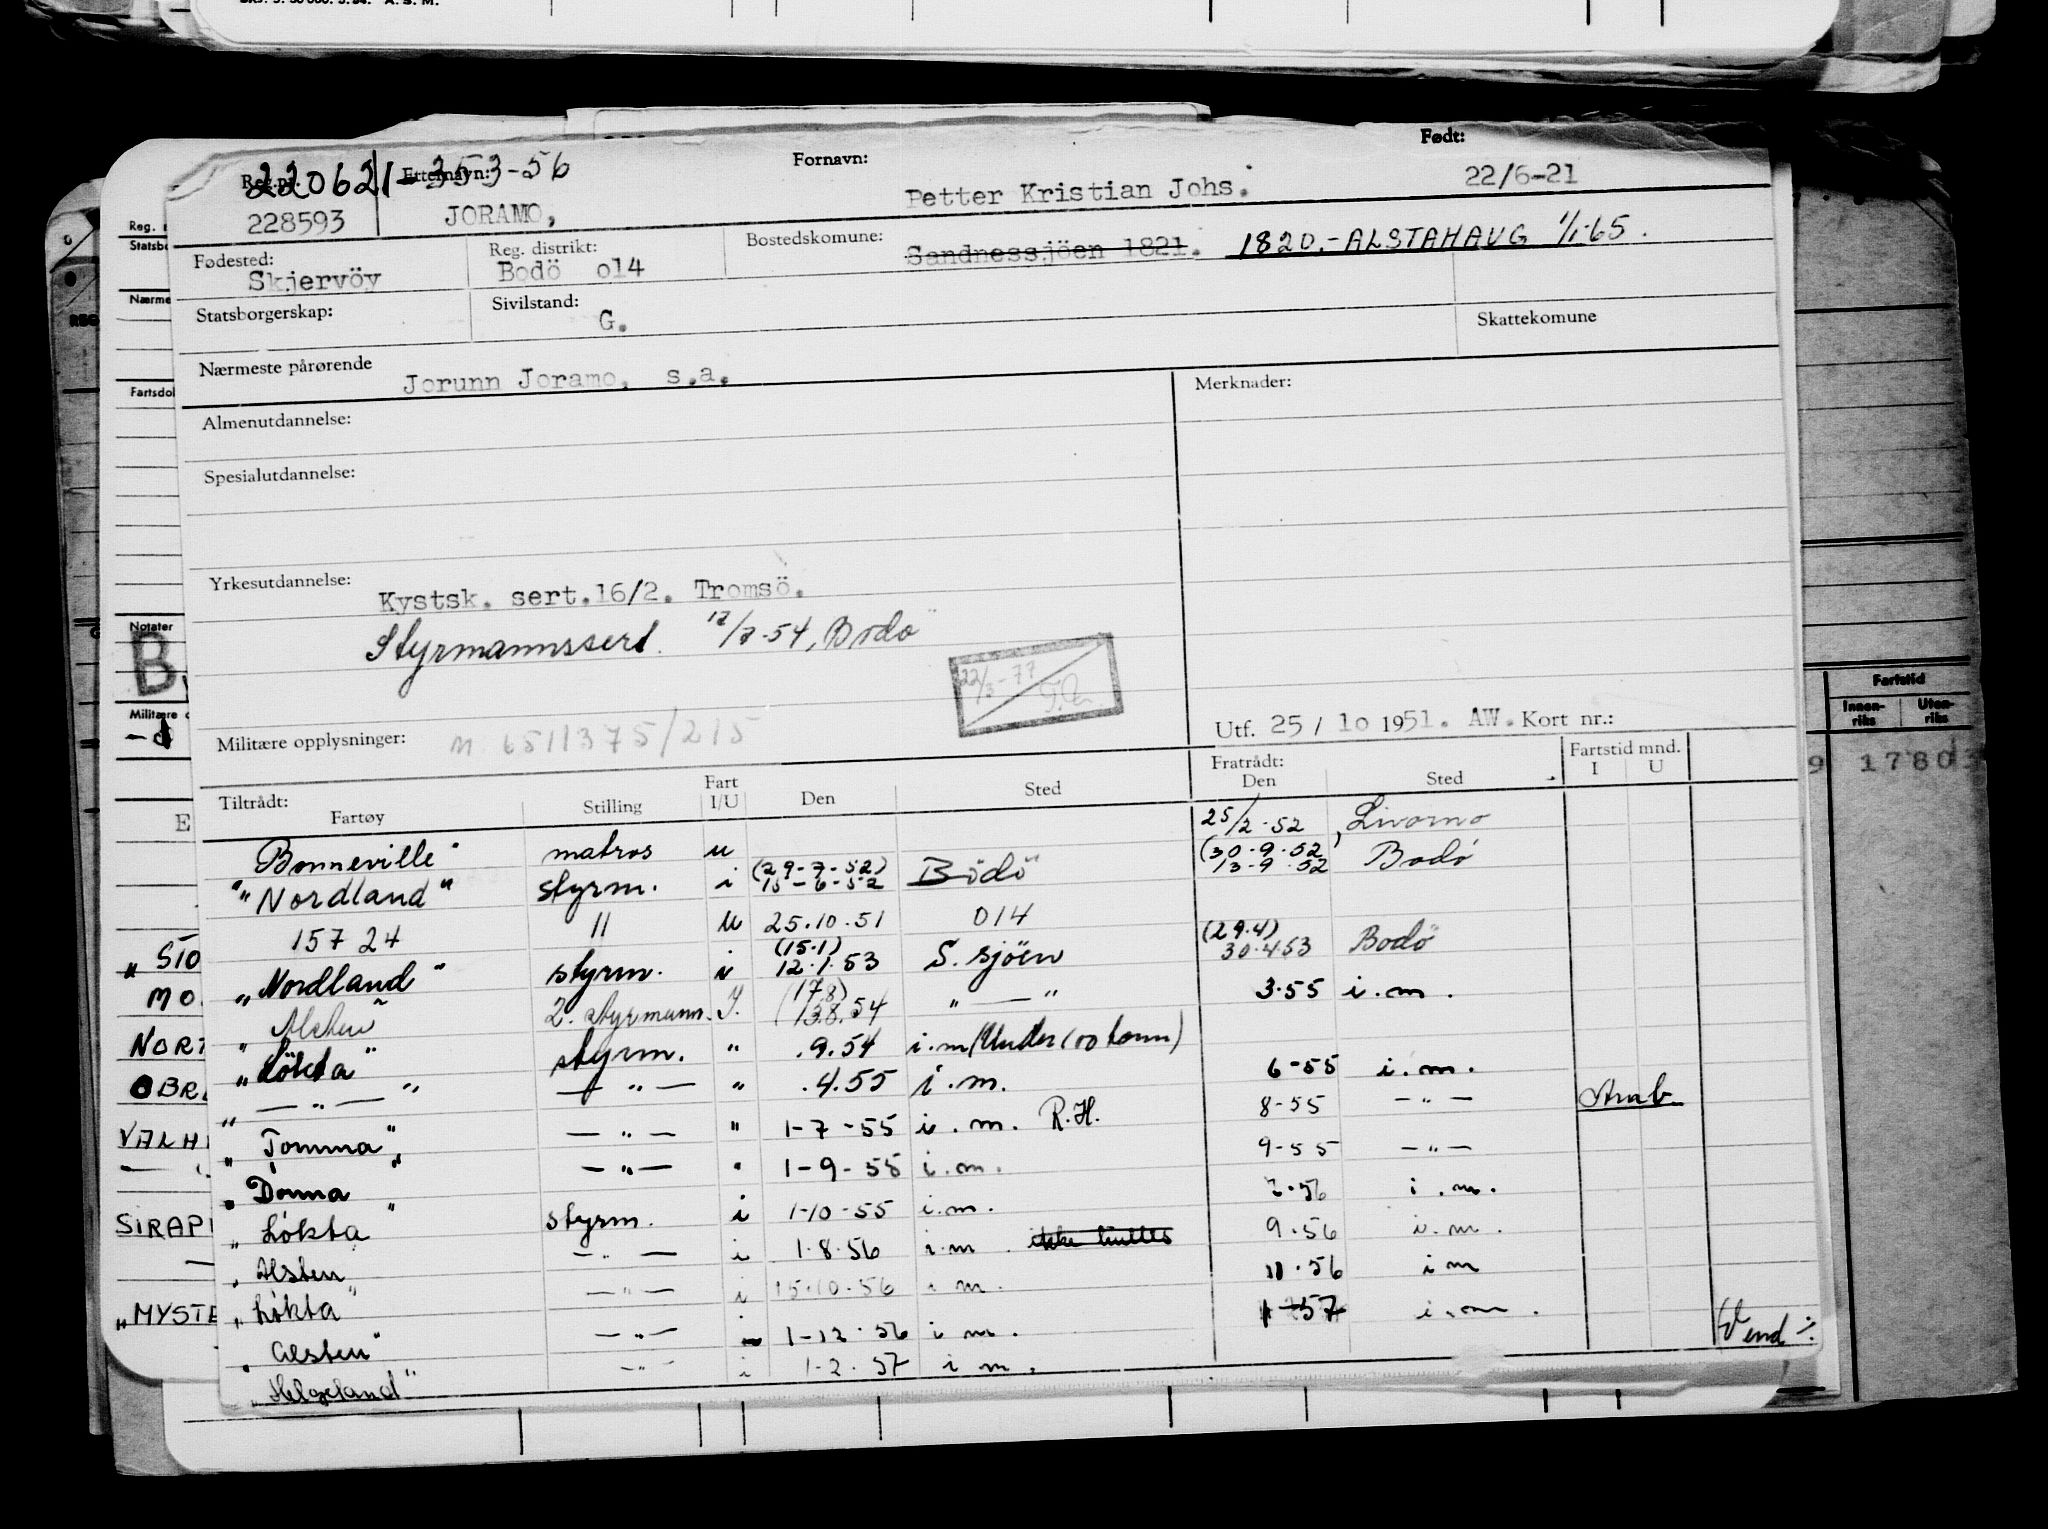 220621-353-56
Reg.nr.: Etternavn: Fornavn: Født:
228593 JORAMO, Petter Kristian Johs. 22/6-21
Fødested: Skjervöy Reg. distrikt: Bodö o14 Bostedskomune: Sandnessjöen 1821. 1820.-ALSTAHAUG 1/1-65.
Statsborgerskap: Sivilstand: G. Skattekomune
Nærmeste pårørende Jorunn Joramo, s.a.
Almenutdannelse: Merknader:
Spesialutdannelse:
Yrkesutdannelse: Kystsk. sert.16/2. Tromsö.
Styrmannssert. 54, Bodö
22/3-77
Militære opplysninger: m. 6511375/215 Utf. 25/10 1951. AW. Kort nr.:
Tiltrådt: Fratrådt: Fartstid mnd.
Fartøy Stilling Fart I/U Den Sted Den Sted I U
Bonneville" matros u 25/2-52, Livorno
"Nordland" styrm. i (29-7-52) 15-6-52 Bodö (30.9.52 13-9.52 Bodö
15724 " u 25.10.51 014
"Nordland" styrm. i (15.1) 12.1.53 S.sjöen (29.4) 30.4.53 Bodö
"Alsten" 2. styrmann. I. (17.8) 13.8.54 " — " 3.55 i.m.
"Lökta" styrm. " .9.54 i.m (Under 100 tonn)
" — " — " — " — " .4.55 i.m. 6-55 i.m.
"Tomma" — " — " 1-7-55 i.m. R.H. 8-55 — " —
"Dönna" — " — " 1-9-55 i.m. 9-55 — " —
"Lökta" styrm. i 1-10-55 i.m. 56 i.m.
"Alsten — " — i 1.8.56 i.m. 9.56 i.m.
"Lökta" — " — i 15.10.56 i m. 11.56 i m
"Alsten" — " — i 1-12.56 i m. 1-57 i.m.
"Helgeland" — " — i 1-2.57 i m.
Vend ./.
Reg.
Statsbo
Nærme
REG
Fartsdo
Notater
B
Militære
E
"STO
MO
NORT
OBRE
VALH
SIRAP
"MYSTE
Fartstid
Innen-riks Uten-riks
9 1780